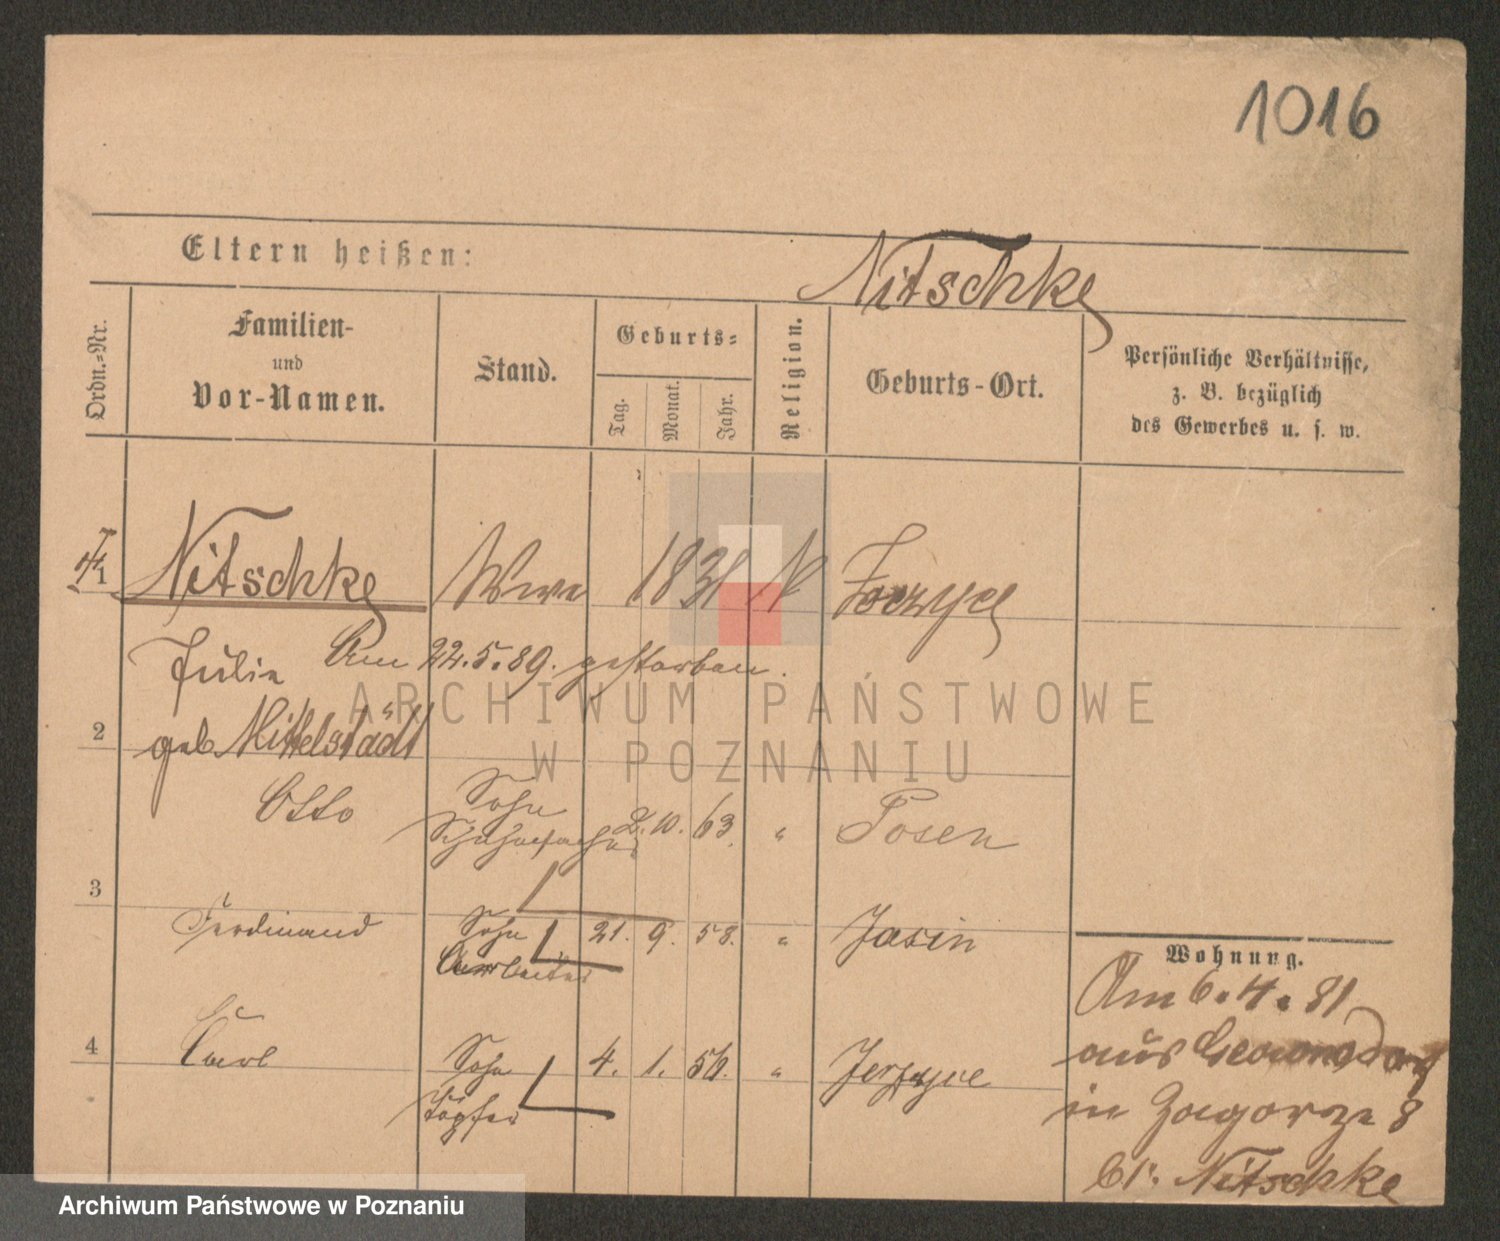 1016
Eltern heißen:
Nitschke
Ordn.-Nr.
Familien-
und
Vor-Namen.
Stand.
Geburts-
Tag.
Monat.
Jahr.
Religion.
Geburts-Ort.
Persönliche Verhältnisse,
z. B. bezüglich
des Gewerbes u. s. w.
1 Nitschke Wwe 1831
Julie Am 22.5.89. gestorben.
2
geb. Mittelstädt
Otto Sohn 2. 10. 63. " Posen
3
Ferdinand Sohn 21. 9. 58. " Jasin
Arbeiter
Wohnung.
Am 6.4.81
4 Carl Sohn 4. 1. 56. "
Töpfer
aus
in Zagorze 8
bei Nitschke
ARCHIWUM PAŃSTWOWE
W POZNANIU
Archiwum Państwowe w Poznaniu